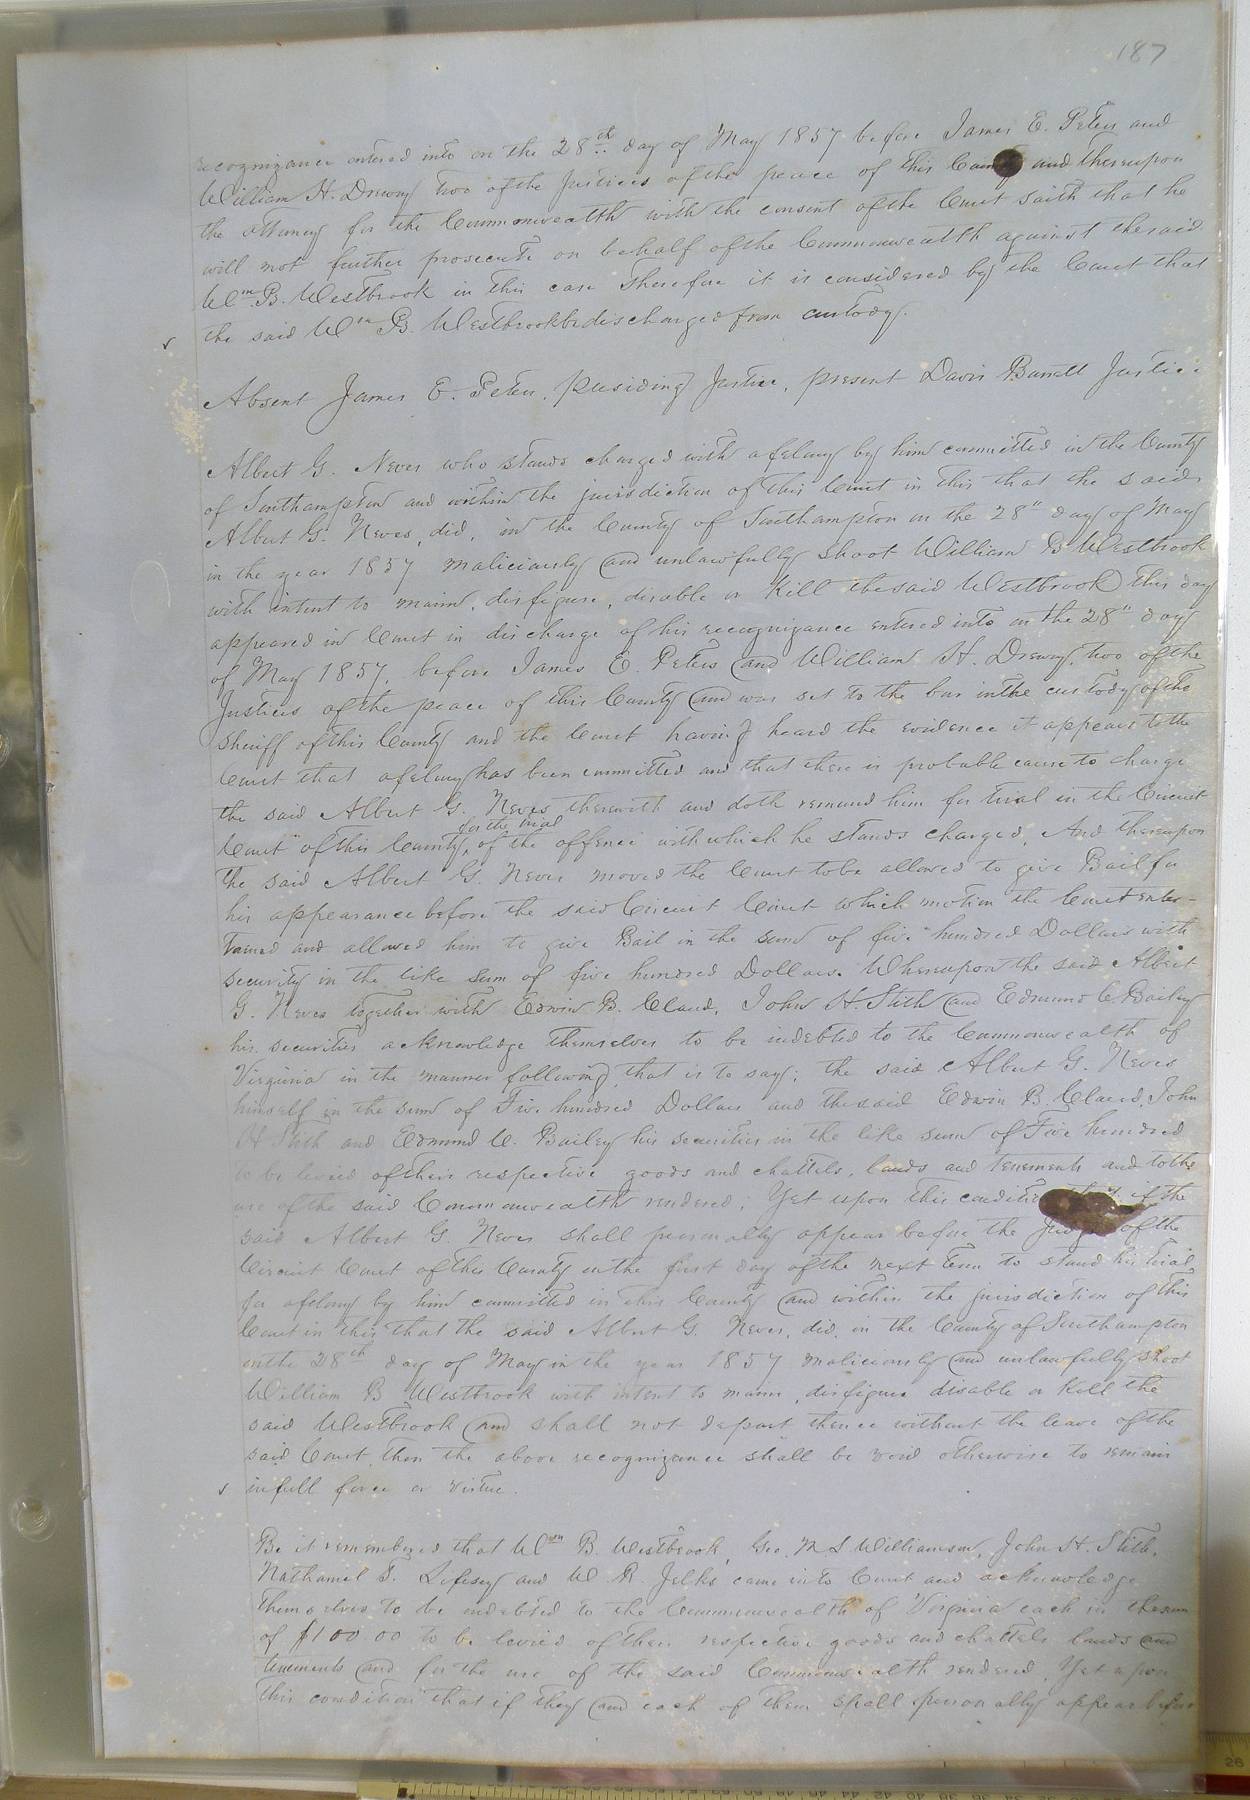 187
recognizance entered into on the 28th day of May 1857 before James E. Peters and
William H. Drewry two of the Justices of the peace of this County and thereupon
the attorney for the Commonwealth with the consent of the Court saith that he
will not further prosecute on behalf of the Commonwealth against the said
Wm B. Westbrook in this case Therefore it is considered by the Court that
the said Wm B. Westbrook be discharged from custody.
Absent James E. Peters, presiding Justice, present Davis Barrett Justice
Albert G. Neves who stands charged with a felony by him committed in the County
of Southampton and within the jurisdiction of this Court in this that the said
Albert G. Neves, did, in the County of Southampton on the 28" day of May
in the year 1857 maliciously and unlawfully shoot William B Westbrook
with intent to maim, disfigure, disable or kill the said Westbrook this day
appeared in Court in discharge of his recognizance entered into on the 28" day
of May 1857, before James E. Peters and William H. Drewry, two of the
Justices of the peace of this County and was set to the bar in the custody of the
Sheriff of this County and the Court having heard the evidence it appears to the
Court that a felony has been committed and that there is probable cause to charge
the said Albert G. Neves therewith and doth remand him for trial in the Circuit
for the trial
Court of this County, of the offence with which he stands charged, And thereupon
the said Albert G. Neves moved the Court to be allowed to give Bail for
his appearance before the said Circuit Court which motion the Court enter-
tained and allowed him to give Bail in the sum of five hundred Dollars with
security in the like sum of five hundred Dollars. Whereupon the said Albert
G. Neves together with Edwin B. Claud, John H. Stith and Edmund C. Bailey
his securities acknowledge themselves to be indebted to the Commonwealth of
Virginia in the manner following, that is to say; the said Albert G. Neves
himself in the sum of Five hundred Dollars and the said Edwin B. Claud, John
H Stith and Edmund C. Bailey his securities in the like sum of Five hundred
to be levied of their respective goods and chattels, lands and tenements and to the
use of the said Commonwealth rendered; Yet upon this condition that if the
said Albert G. Neves shall personally appear before the Judge of the
Circuit Court of this County on the first day of the next Term to stand his trial,
for a felony by him committed in this County and within the jurisdiction of this
Court in this that the said Albert G. Neves, did, in the County of Southampton
on the 28th day of May in the year 1857 maliciously and unlawfully shoot
William B Westbrook with intent to maim, disfigure disable or kill the
said Westbrook and shall not depart thence without the leave of the
said Court, then the above recognizance shall be void otherwise to remain
in full force or virtue.
Be it remembered that Wm B. Westbrook, Geo. N S Williamson, John H. Stith,
Nathaniel T. Livesay and W. R. Jelks came into Court and acknowledge
themselves to be indebted to the Commonwealth of Virginia each in the sum
of $100.00 to be levied of their respective goods and chattels lands and
tenements and for the use of the said Commonwealth rendered, Yet upon
this condition that if they and each of them shall personally appear before